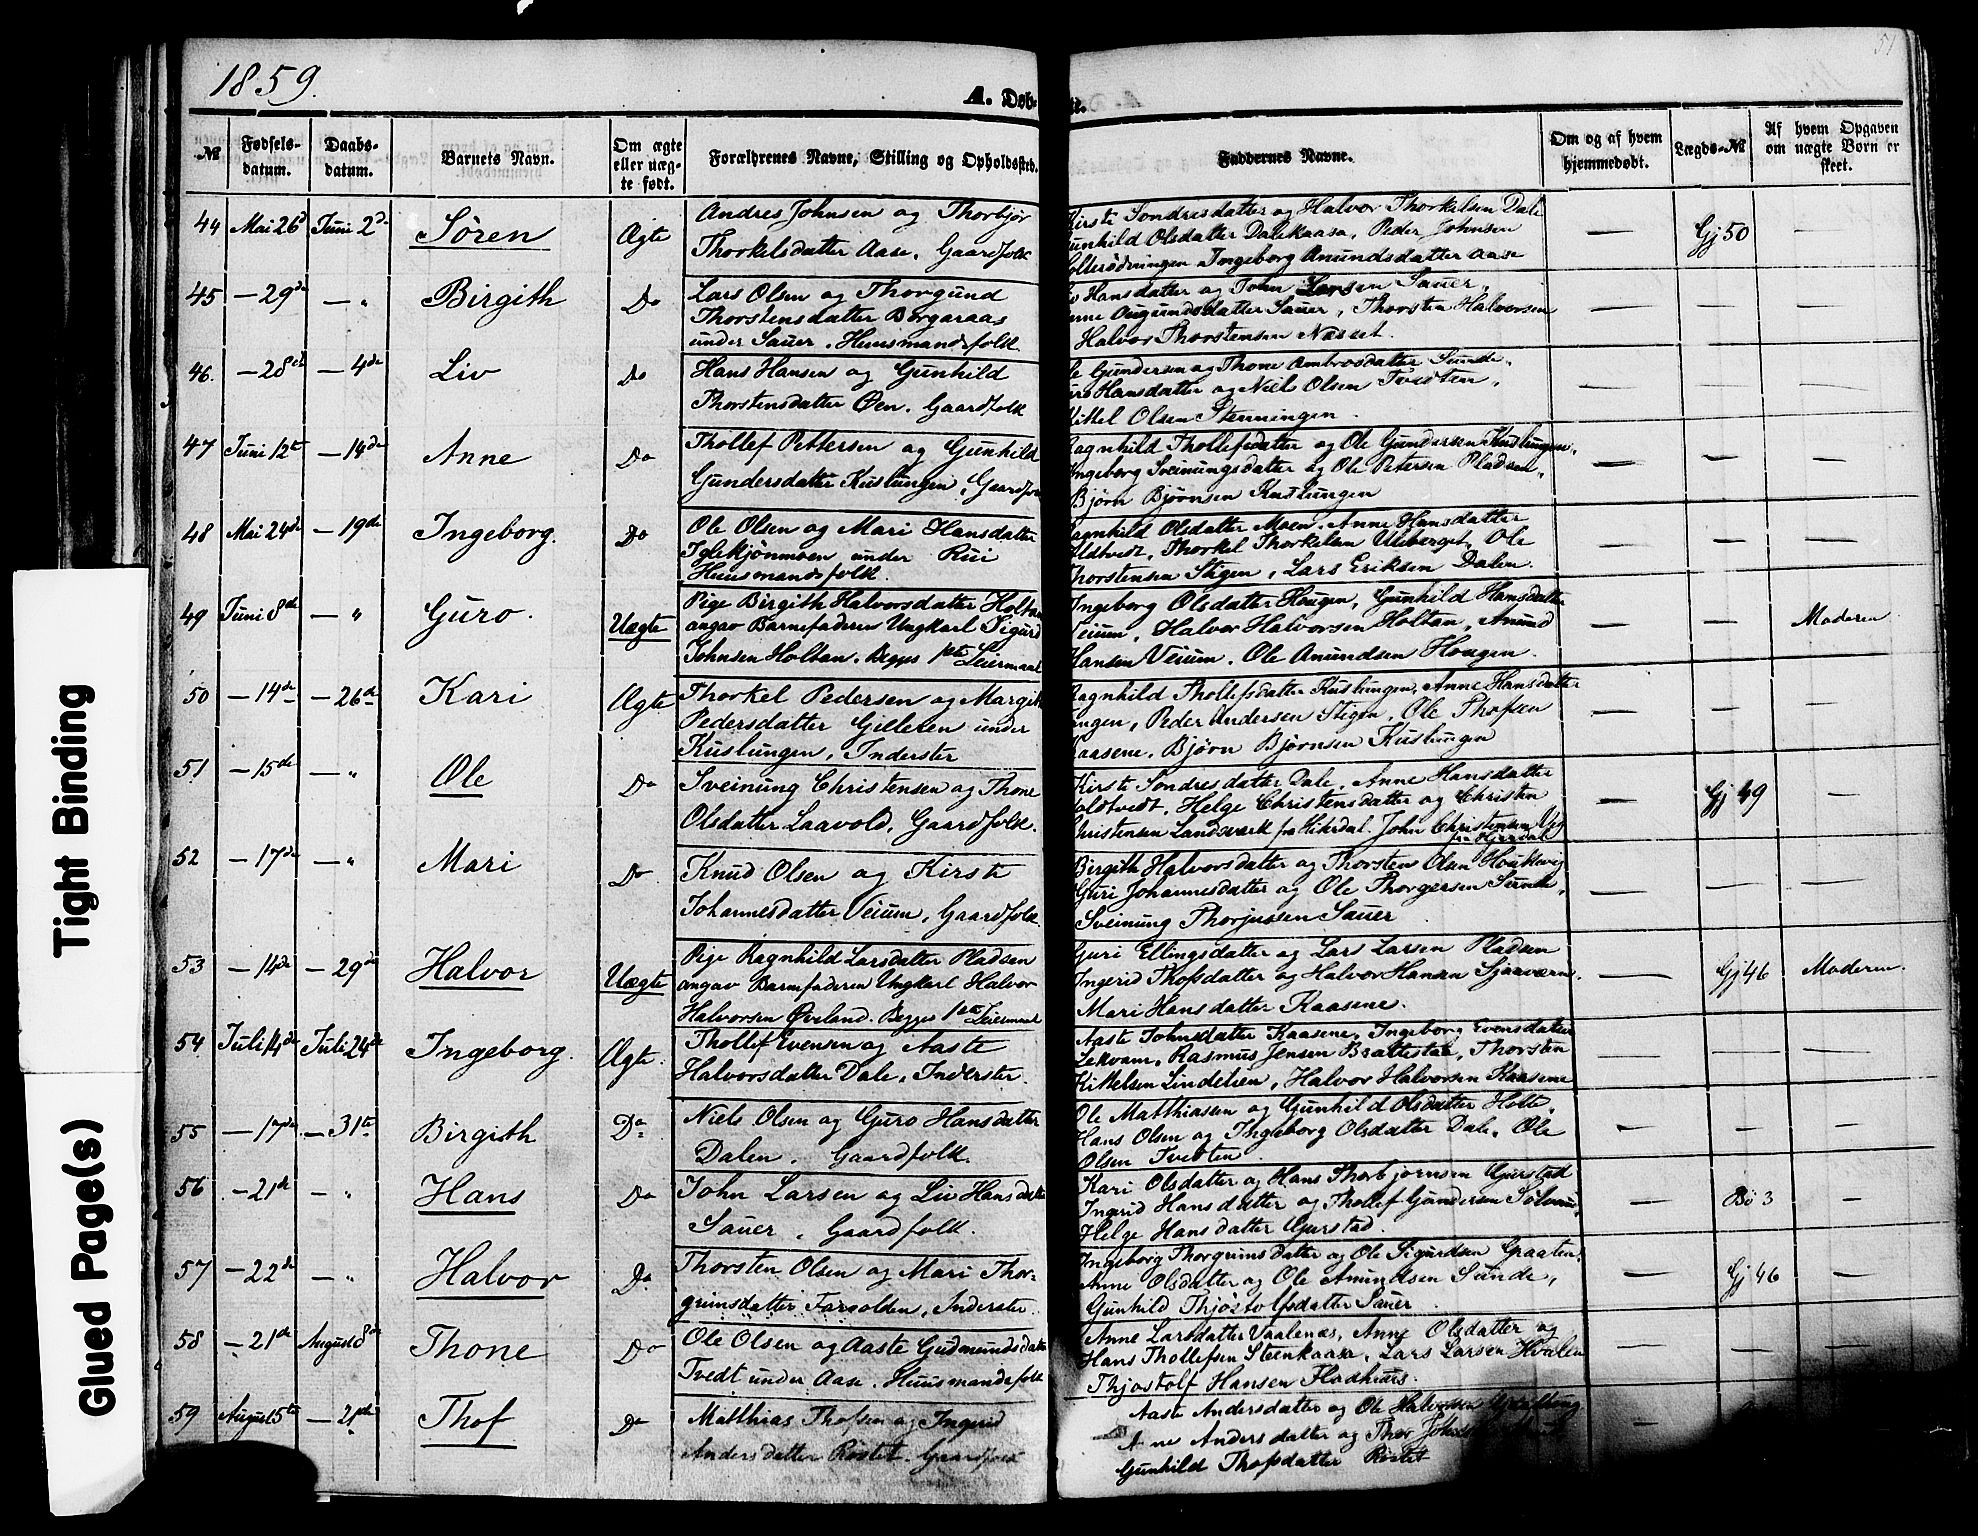 51
1859.
A. Døb-
te.
№
Fødsels-
datum.
Daabs-
datum.
Barnets Navn.
Om ægte
eller uæg-
te født.
Forælhrenes Navne, Stilling og Opholdssted.
Faddernes Navne.
Om og af hvem
hjemmedøbt.
Lægds-№
Af hvem Opgaven
om uægte Børn er
skeet.
44 Mai 26d Juni 2d Søren Ægte
Andres Johnsen og Thorbjør
Thorkelsdatter Aase. Gaardfolk
Kirste Sondresdatter og Halvor Thorkelsen Dale
Gunhild Olsdatter Dalekaasa, Peder Johnsen
Ingeborg Anundsdatter Aase
— Gj 50 —
45 — 29de — " Birgith Do
Lars Olsen og Thorgund
Thorstensdatter Borgaraas
under Sauer. Huusmandsfolk.
Hansdatter og John Larsen Sauer,
Sauer, Thorsten Halvorsen
Halvor Thorstensen Næsset.
— — —
46. — 28de — 4de Liv Do
Hans Hansen og Gunhild
Thorstensdatter Øen. Gaardfolk
Ole Gundersen og Thone Ambrosdatter Sunde.
Hansdatter og Niels Olsen Tveten,
Kittel Olsen Stenningen.
— — —
47 Juni 12te — 14de Anne Do
Thollef Pettersen og Gunhild
Gundersdatter Kuslungen, Gaardfo
Ragnhild Thollefsdatter og Ole Gundersen Kuslungen.
Ingeborg Sveinungsdatter og Ole Petersen Pladsen,
Bjørn Bjørnsen Kuslungen
— — —
48 Mai 24de — 19de Ingeborg. Do
Ole Olsen og Mari Hansdatter
Iglekjønmoen under Rui
Huusmandsfolk.
Ragnhild Olsdatter Moen. Anne Hansdatter
Thorkel Thorkelsen Uleberget, Ole
Thorstensen Stigen, Lars Eriksen Dalen.
— — —
49 Juni 8de — " Guro. Uægte
Pige Birgith Halvorsdatter Holtan
angav Barnefaderen Ungkarl Sigurd
Johnsen Holtan. Begges 1ste Leiermaal
Ingeborg Olsdatter Hougen, Gunhild Hansdatter
Veium, Halvor Halvorsen Holtan, Anund
Hansen Veium. Ole Anundsen Hougen.
— — Moderen
50 — 14de — 26de Kari Ægte
Thorkel Pedersen og Margit
Pedersdatter Gilleien under
Kuslungen, Inderster
Ragnhild Thollefsdatter Kuslungen, Anne Hansdatter
Tangen, Peder Andersen Stigen, Ole Thofsen
Kaasene. Bjørn Bjørnsen Kuslungen
— — —
51 — 15de — " Ole Do
Sveinung Christensen og Thone
Olsdatter Laavold, Gaardfolk.
Kirste Sondresdatter Dale, Anne Hansdatter
Holtvedt, Helge Christensdatter og Christen
Christensen Landsverk fra Hitdal. John Christensen
fra Hjerdal
— Gj 49 —
52 — 17de — " Mari Do
Knud Olsen og Kirste
Johannesdatter Veium, Gaardfolk
Birgith Halvorsdatter og Thorsten Olsen Houkevig
Guri Johannesdatter og Ole Thorgersen Sunde,
Sveinung Thorjussen Sauer
— — —
53 — 14de — 29de Halvor Uægte
Pige Ragnhild Larsdatter Pladsen
angav Barnefaderen Ungkarl Halvor
Halvorsen Øveland. Begges 1ste Leiermaal
Guri Ellingsdatter og Lars Larsen Pladsen
Ingerid Thofsdatter og Halvor Hansen
Mari Hansdatter Kaasene.
— Gj 46 Moderen.
54 Juli 14de Juli 24de Ingeborg. Ægte.
Thollef Evensen og Aaste
Halvorsdatter Dale, Inderster.
Aaste Johnsdatter Kaasene, Ingeborg Evensdatter
Lekvam, Rasmus Jensen Brattestaa, Thorsten
Kittelsen Lindelien, Halvor Halvorsen Kaasene
— — —
55 — 17de — 31te Birgith Do
Niels Olsen og Guro Hansdatter
Dalen. Gaardfolk.
Ole Matthiassen og Gunhild Olsdatter Holte.
Hans Olsen og Ingeborg Olsdatter Dale. Ole
Olsen Tveten
— — —
56 — 21de " Hans Do
John Larsen og Liv Hansdatter
Sauer, Gaardfolk.
Kari Olsdatter og Hans Thorbjørnsen Gurstad
Ingrid Hansdatter og Thollef Gundersen
Helge Hansdatter Gurstad.
— Bø 3 —
57 — 22de — " Halvor Do
Thorsten Olsen og Mari Thor-
grimsdatter Farvolden, Inderster.
Ingeborg Thorgrimsdatter og Ole Sigurdsen Graaten,
Anne Olsdatter og Ole Anundsen Sunde,
Gunhild Thjøstolfsdatter Sauer
— Gj 46 —
58 — 21de August 8de Thone Do
Ole Olsen og Aaste Gudmundsdatter
Tvedt under Aase. Huusmandsfolk
Anne Larsdatter Vaalenæs, Anne Olsdatter og
Hans Thollefsen Steenkaasa, Lars Larsen Hvalen
Thjøstolf Hansen Fladhuus.
— — —
59 August 5te — 21de Thof Do
Matthias Thofsen og Ingerid
Andersdatter Røstet. Gaardfolk
Aaste Andersdatter og Ole Halvorsen
Anne Andersdatter og Thor
Gunhild Thofsdatter Røstet
—
Tight Binding
Glued Page(s)